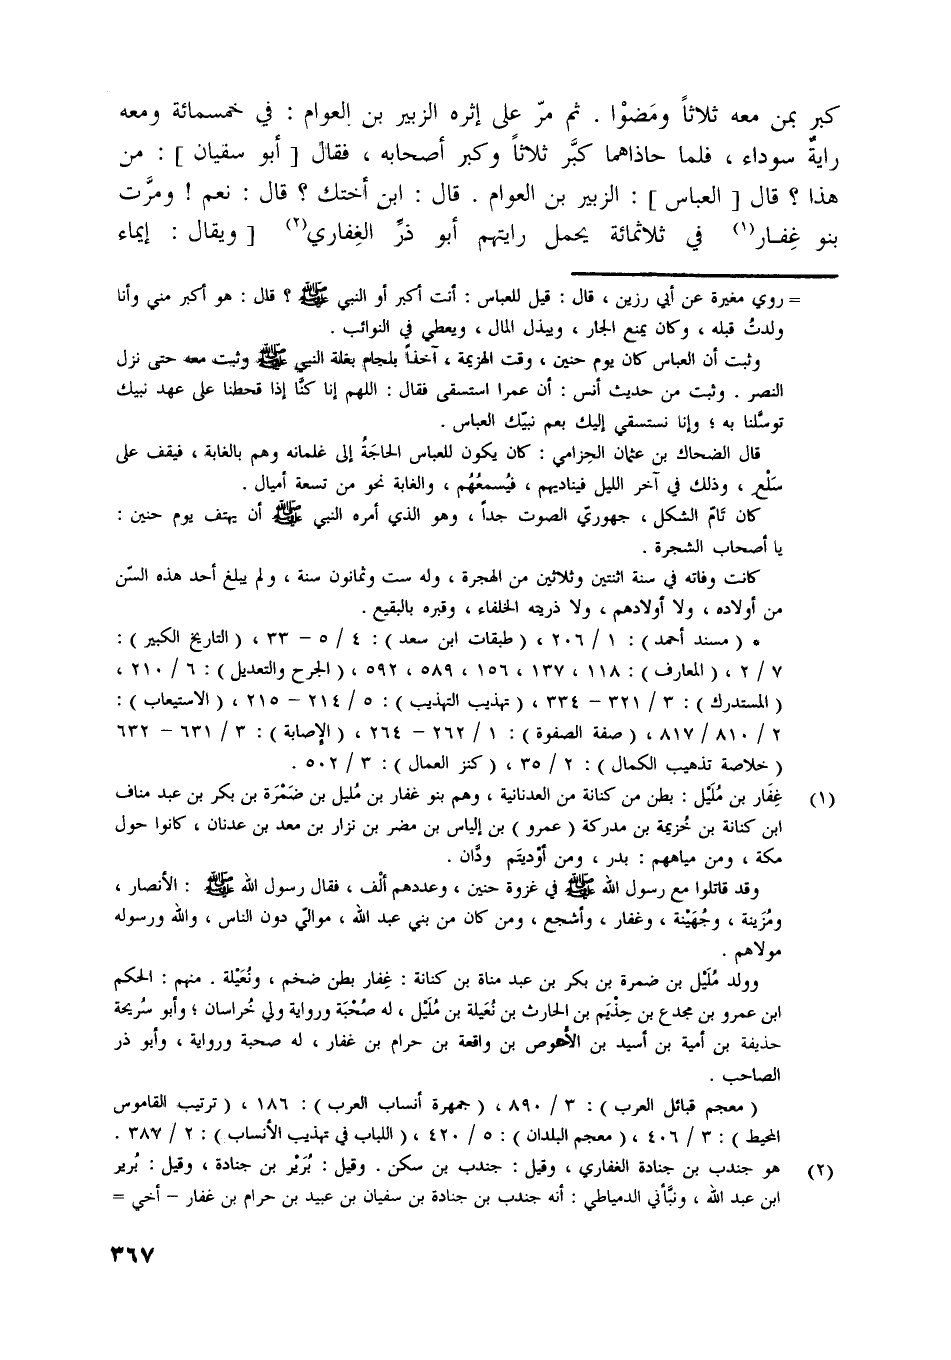 كبر بمن معه ثلاثاً ومَضوْا . ثم مرّ على إثره الزبير بن العوام : في خمسمائة ومعه
رايةٌ سوداء ، فلما حاذاهما كبَّر ثلاثاً وكبر أصحابه ، فقال [ أبو سفيان ] : من
هذا ؟ قال [ العباس ] : الزبير بن العوام . قال : ابن أختك ؟ قال : نعم ! ومرَّت
بنو غِفـار(١) في ثلاثمائة يحمل رايتهم أبو ذرٍّ الغِفاري(٢) [ ويقال : إيماء
= روي مغيرة عن أبي رزين ، قال : قيل للعباس : أنت أكبر أو النبي ﷺ ؟ قال : هو أكبر مني وأنا
ولدتُ قبله ، وكان يمنع الجار ، ويبذل المال ، ويعطي في النوائب .
وثبت أن العباس كان يوم حنين ، وقت الهزيمة ، آخذاً بلجام بغلة النبي ﷺ وثبت معه حتى نزل
النصر . وثبت من حديث أنس : أن عمرا استسقى فقال : اللهم إنا كنَّا إذا قحطنا على عهد نبيك
توسَّلنا به ؛ وإنا نستسقي إليك بعم نبيّك العباس .
قال الضحاك بن عثمان الحِزامي : كان يكون للعباس الحاجَةُ إلى غلمانه وهم بالغابة ، فيقف على
سَلْعٍ ، وذلك في آخر الليل فيناديهم ، فيُسمعُهُم ، والغابة نحو من تسعة أميال .
كان تَامّ الشكل ، جهوريّ الصوت جداً ، وهو الذي أمره النبي ﷺ أن يهتف يوم حنين :
يا أصحاب الشجرة .
كانت وفاته في سنة اثنتين وثلاثين من الهجرة ، وله ست وثمانون سنة ، ولم يبلغ أحد هذه السّن
من أولاده ، ولا أولادهم ، ولا ذريته الخلفاء ، وقبره بالبقيع .
* ( مسند أحمد ) : ١ / ٢٠٦ ، ( طبقات ابن سعد ) : ٤ / ٥ – ٣٣ ، ( التاريخ الكبير ) :
٧ / ٢ ، ( المعارف ) : ١١٨ ، ١٣٧ ، ١٥٦ ، ٥٨٩ ، ٥٩٢ ، ( الجرح والتعديل ) : ٦ / ٢١٠ ،
( المستدرك ) : ٣ / ٣٢١ – ٣٣٤ ، ( تهذيب التهذيب ) : ٥ / ٢١٤ – ٢١٥ ، ( الاستيعاب ) :
٢ / ٨١٠ / ٨١٧ ، ( صفة الصفوة ) : ١ / ٢٦٢ – ٢٦٤ ، ( الإصابة ) : ٣ / ٦٣١ – ٦٣٢
( خلاصة تذهيب الكمال ) : ٢ / ٣٥ ، ( كنز العمال ) : ٣ / ٥٠٢ .
(١) غِفَار بن مُلَيْل : بطن من كنانة من العدنانية ، وهم بنو غفار بن مُليل بن ضَمْرَة بن بكر بن عبد مناف
ابن كنانة بن خُزيمة بن مدركة ( عمرو ) بن إلياس بن مضر بن نزار بن معد بن عدنان ، كانوا حول
مكة ، ومن مياههم : بدر ، ومن أوْديتَم ودَّان .
وقد قاتلوا مع رسول الله ﷺ في غزوة حنين ، وعددهم ألْف ، فقال رسول الله ﷺ : الأنصار ،
ومُزَينة ، وجُهَيْنة ، وغفار ، وأشجع ، ومن كان من بني عبد الله ، مواليّ دون الناس ، والله ورسوله
مولاهم .
وولد مُلَيْل بن ضمرة بن بكر بن عبد مناة بن كنانة : غِفار بطن ضخم ، ونُعَيْلة . منهم : الحكم
ابن عمرو بن مجدع بن حِذْيَم بن الحارث بن نُعَيلة بن مُلَيْل ، له صُحْبَة ورواية ولي خُراسان ؛ وأبو سُريحة
حذيفة بن أمية بن أسيد بن الأَعوص بن واقعة بن حرام بن غفار ، له صحبة ورواية ، وأبو ذر
الصاحب .
( معجم قبائل العرب ) : ٣ / ٨٩٠ ، ( جمهرة أنساب العرب ) : ١٨٦ ، ( ترتيب القاموس
المحيط ) : ٣ / ٤٠٦ ، ( معجم البلدان ) : ٥ / ٤٢٠ ، ( اللباب في تهذيب الأنساب ) : ٢ / ٣٨٧ .
(٢) هو جندب بن جنادة الغفاري ، وقيل : جندب بن سكن . وقيل : بُرَيْر بن جنادة ، وقيل : بُرير
ابن عبد الله ، ونبَّأني الدمياطي : أنه جندب بن جنادة بن سفيان بن عبيد بن حرام بن غفار – أخي =
٣٦٧